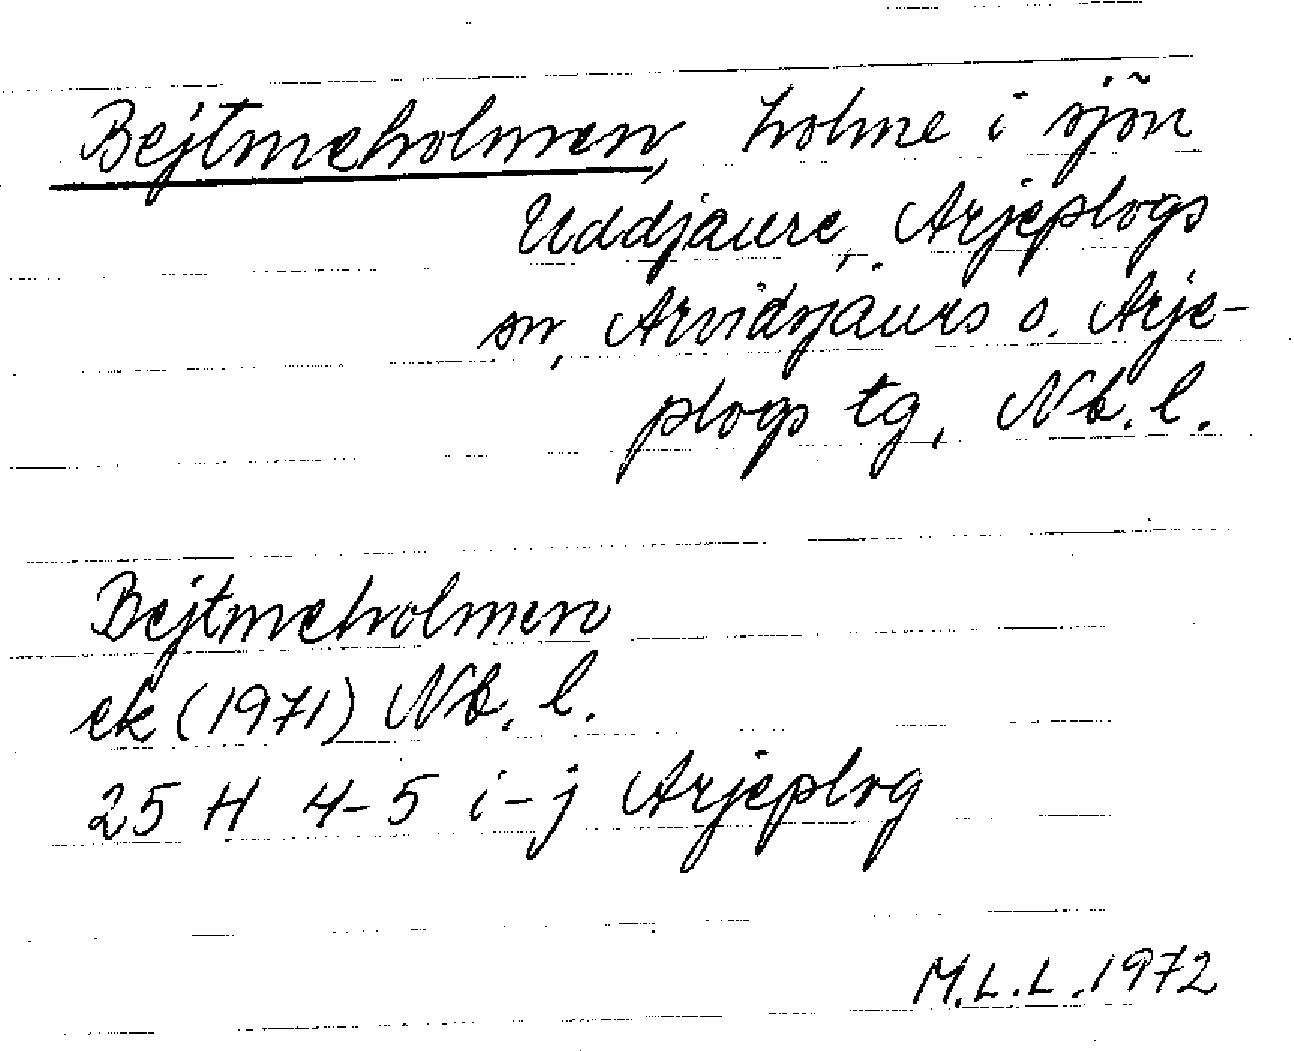 Bejtmeholmen, holme i sjön
Uddjaure, Arjeplogs
sn, Arvidsjaurs o. Arje-
plogs tg, Nb. l.
Bejtmeholmen
ek (1971) Nb. l.
25 H 4-5 i-j Arjeplog
M.L.L. 1972